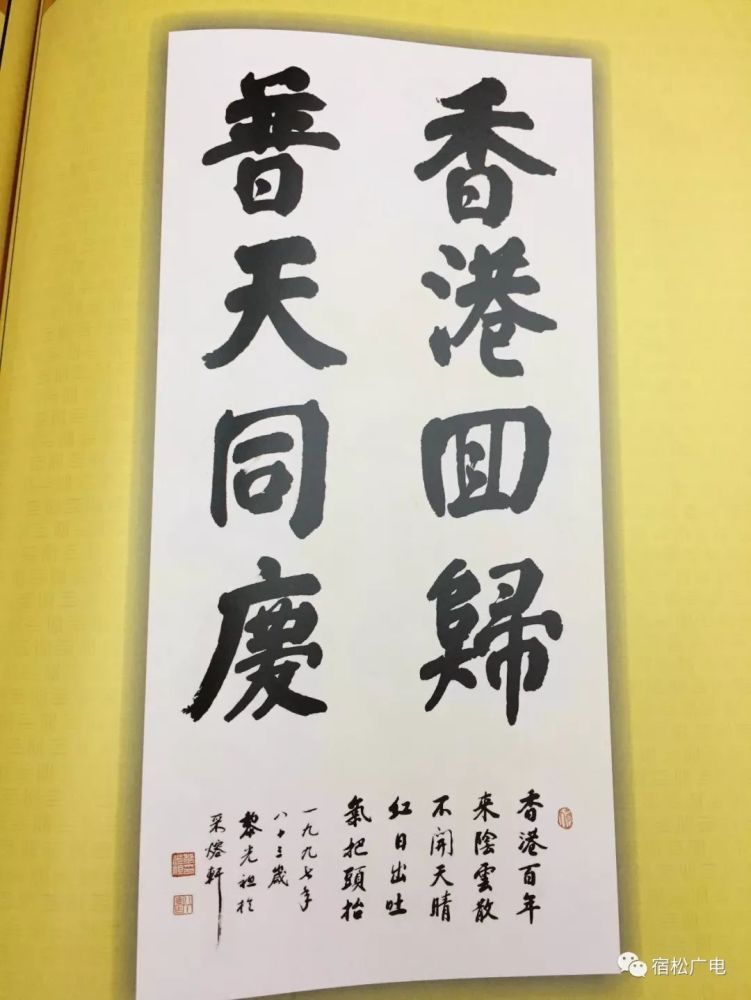 香港回歸
普天同慶
香港百年
來陰雲散
不開天晴
紅日出吐
氣把頭抬
一九九七年
八十三歲
黎光祖於
采熔軒
宿松广电